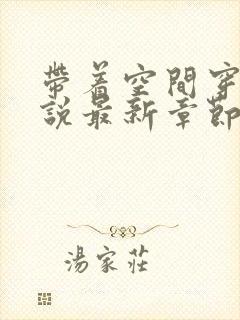 帶着空間穿
說最新章節
湯家莊